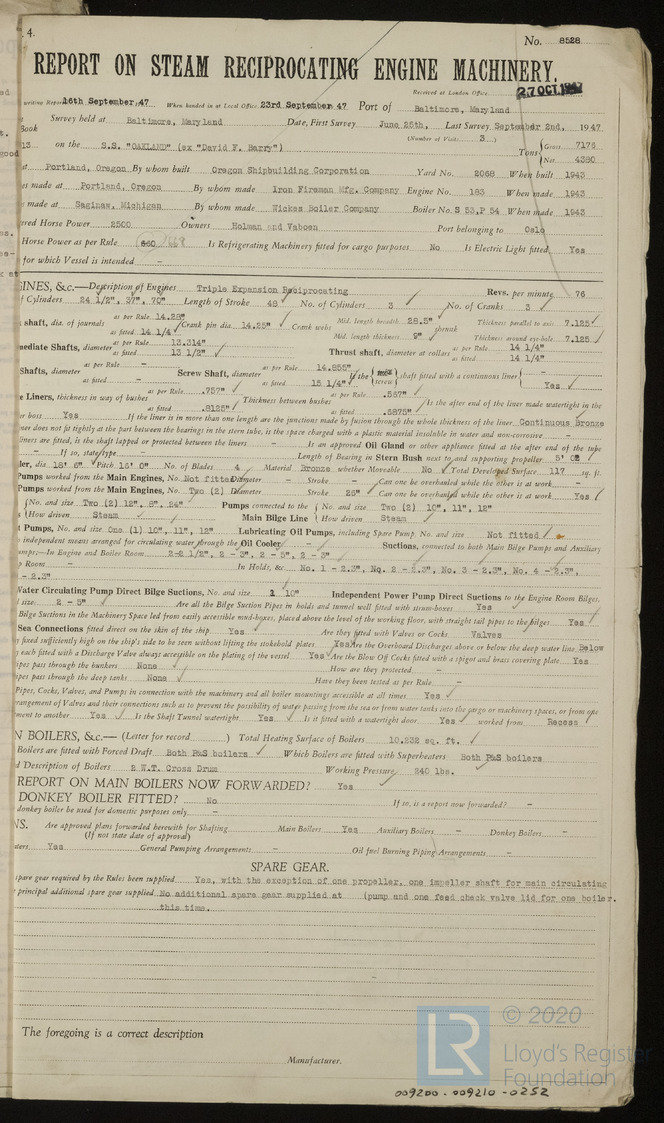 4.
No. 8528
REPORT ON STEAM RECIPROCATING ENGINE MACHINERY.
Received at London Office
27 OCT 1947
writing Report 16th September, 47 When handed in at Local Office 23rd September 47 Port of Baltimore, Maryland
Survey held at Baltimore, Maryland Date, First Survey June 26th, Last Survey September 2nd, 1947
Book
(Number of Visits 3 )
13 on the S.S. "OAKLAND" (ex "David F. Barry") Tons { Gross 7176
Net 4380
at Portland, Oregon By whom built Oregon Shipbuilding Corporation Yard No. 2068 When built 1943
es made at Portland, Oregon By whom made Iron Fireman Mfg. Company Engine No. 183 When made 1943
s made at Saginaw, Michigan By whom made Wickes Boiler Company Boiler No. S 53, P 54 When made 1943
ered Horse Power 2500 Owners Port belonging to Oslo
Horse Power as per Rule 660 Is Refrigerating Machinery fitted for cargo purposes No Is Electric Light fitted Yes
for which Vessel is intended -
GINES, &c.—Description of Engines Triple Expansion Reciprocating Revs. per minute 76
f Cylinders 24 1/2", 37", 70" Length of Stroke 48 No. of Cylinders 3 No. of Cranks 3
shaft, dia. of journals as per Rule 14.28" as fitted 14 1/4" Crank pin dia. 14.25" Crank webs Mid. length breadth 28.5" shrunk Thickness parallel to axis 7.125
Mid. length thickness 9" Thickness around eye-hole 7.125
mediate Shafts, diameter as per Rule 13.314" as fitted 13 1/2" Thrust shaft, diameter at collars as per Rule 14 1/4" as fitted 14 1/4"
Shafts, diameter as per Rule - as fitted - Screw Shaft, diameter as per Rule 14.855" as fitted 15 1/4" Is the { screw } shaft fitted with a continuous liner { - Yes
e Liners, thickness in way of bushes as per Rule .757" as fitted .8125" Thickness between bushes as per Rule .567" as fitted .6875" Is the after end of the liner made watertight in the
er boss Yes If the liner is in more than one length are the junctions made by fusion through the whole thickness of the liner Continuous Bronze
iner does not fit tightly at the part between the bearings in the stern tube, is the space charged with a plastic material insoluble in water and non-corrosive -
liners are fitted, is the shaft lapped or protected between the liners - Is an approved Oil Gland or other appliance fitted at the after end of the tube
- If so, state type - Length of Bearing in Stern Bush next to and supporting propeller 5' 0"
ler, dia 18' 6" Pitch 16' 0" No. of Blades 4 Material Bronze whether Moveable No Total Developed Surface 117 sq. ft.
Pumps worked from the Main Engines, No. Not fitted Diameter - Stroke - Can one be overhauled while the other is at work -
Pumps worked from the Main Engines, No. Two (2) Diameter Stroke 26" Can one be overhauled while the other is at work Yes
{ No. and size Two (2) 12", 8", 24" Pumps connected to the Main Bilge Line { No. and size Two (2) 10", 11", 12"
{ How driven Steam { How driven Steam
Pumps, No. and size One (1) 10", 11", 12" Lubricating Oil Pumps, including Spare Pump, No. and size Not fitted
independent means arranged for circulating water through the Oil Cooler - Suctions, connected to both Main Bilge Pumps and Auxiliary
umps;—In Engine and Boiler Room 2-2 1/2", 2 - 3", 2 - 5", 2 - 3"
p Room - In Holds, &c No. 1 - 2.3", No. 2 - 2.3", No. 3 - 2.3", No. 4 - 2.3",
- 2.3".
Water Circulating Pump Direct Bilge Suctions, No. and size 1 10" Independent Power Pump Direct Suctions to the Engine Room Bilges.
size 2 - 5" Are all the Bilge Suction Pipes in holds and tunnel well fitted with strum-boxes Yes
Bilge Suctions in the Machinery Space led from easily accessible mud-boxes, placed above the level of the working floor, with straight tail pipes to the bilges Yes
Sea Connections fitted direct on the skin of the ship Yes Are they fitted with Valves or Cocks Valves
y fixed sufficiently high on the ship's side to be seen without lifting the stokehold plates Yes Are the Overboard Discharges above or below the deep water line Below
y each fitted with a Discharge Valve always accessible on the plating of the vessel Yes Are the Blow Off Cocks fitted with a spigot and brass covering plate Yes
ipes pass through the bunkers None How are they protected -
ipes pass through the deep tanks None Have they been tested as per Rule -
Pipes, Cocks, Valves, and Pumps in connection with the machinery and all boiler mountings accessible at all times Yes
rrangement of Valves and their connections such as to prevent the possibility of water passing from the sea or from water tanks into the cargo or machinery spaces, or from one
ment to another Yes Is the Shaft Tunnel watertight Yes Is it fitted with a watertight door Yes worked from Recess
N BOILERS, &c.— (Letter for record ) Total Heating Surface of Boilers 10.232 sq. ft.
Boilers are fitted with Forced Draft Both P&S boilers Which Boilers are fitted with Superheaters Both P&S boilers
d Description of Boilers 2 W.T. Cross Drum Working Pressure 240 lbs.
REPORT ON MAIN BOILERS NOW FORWARDED? Yes
DONKEY BOILER FITTED? No If so, is a report now forwarded? -
donkey boiler be used for domestic purposes only -
NS. Are approved plans forwarded herewith for Shafting Main Boilers Yes Auxiliary Boilers - Donkey Boilers -
(If not state date of approval)
aters Yes General Pumping Arrangements - Oil fuel Burning Piping Arrangements -
SPARE GEAR.
spare gear required by the Rules been supplied Yes, with the exception of one propeller, one impeller shaft for main circulating
principal additional spare gear supplied No additional spare gear supplied at (pump and one feed check valve lid for one boiler.
this time.
The foregoing is a correct description
Manufacturer.
LR © 2020
Lloyd's Register
Foundation
009200-009210-0252